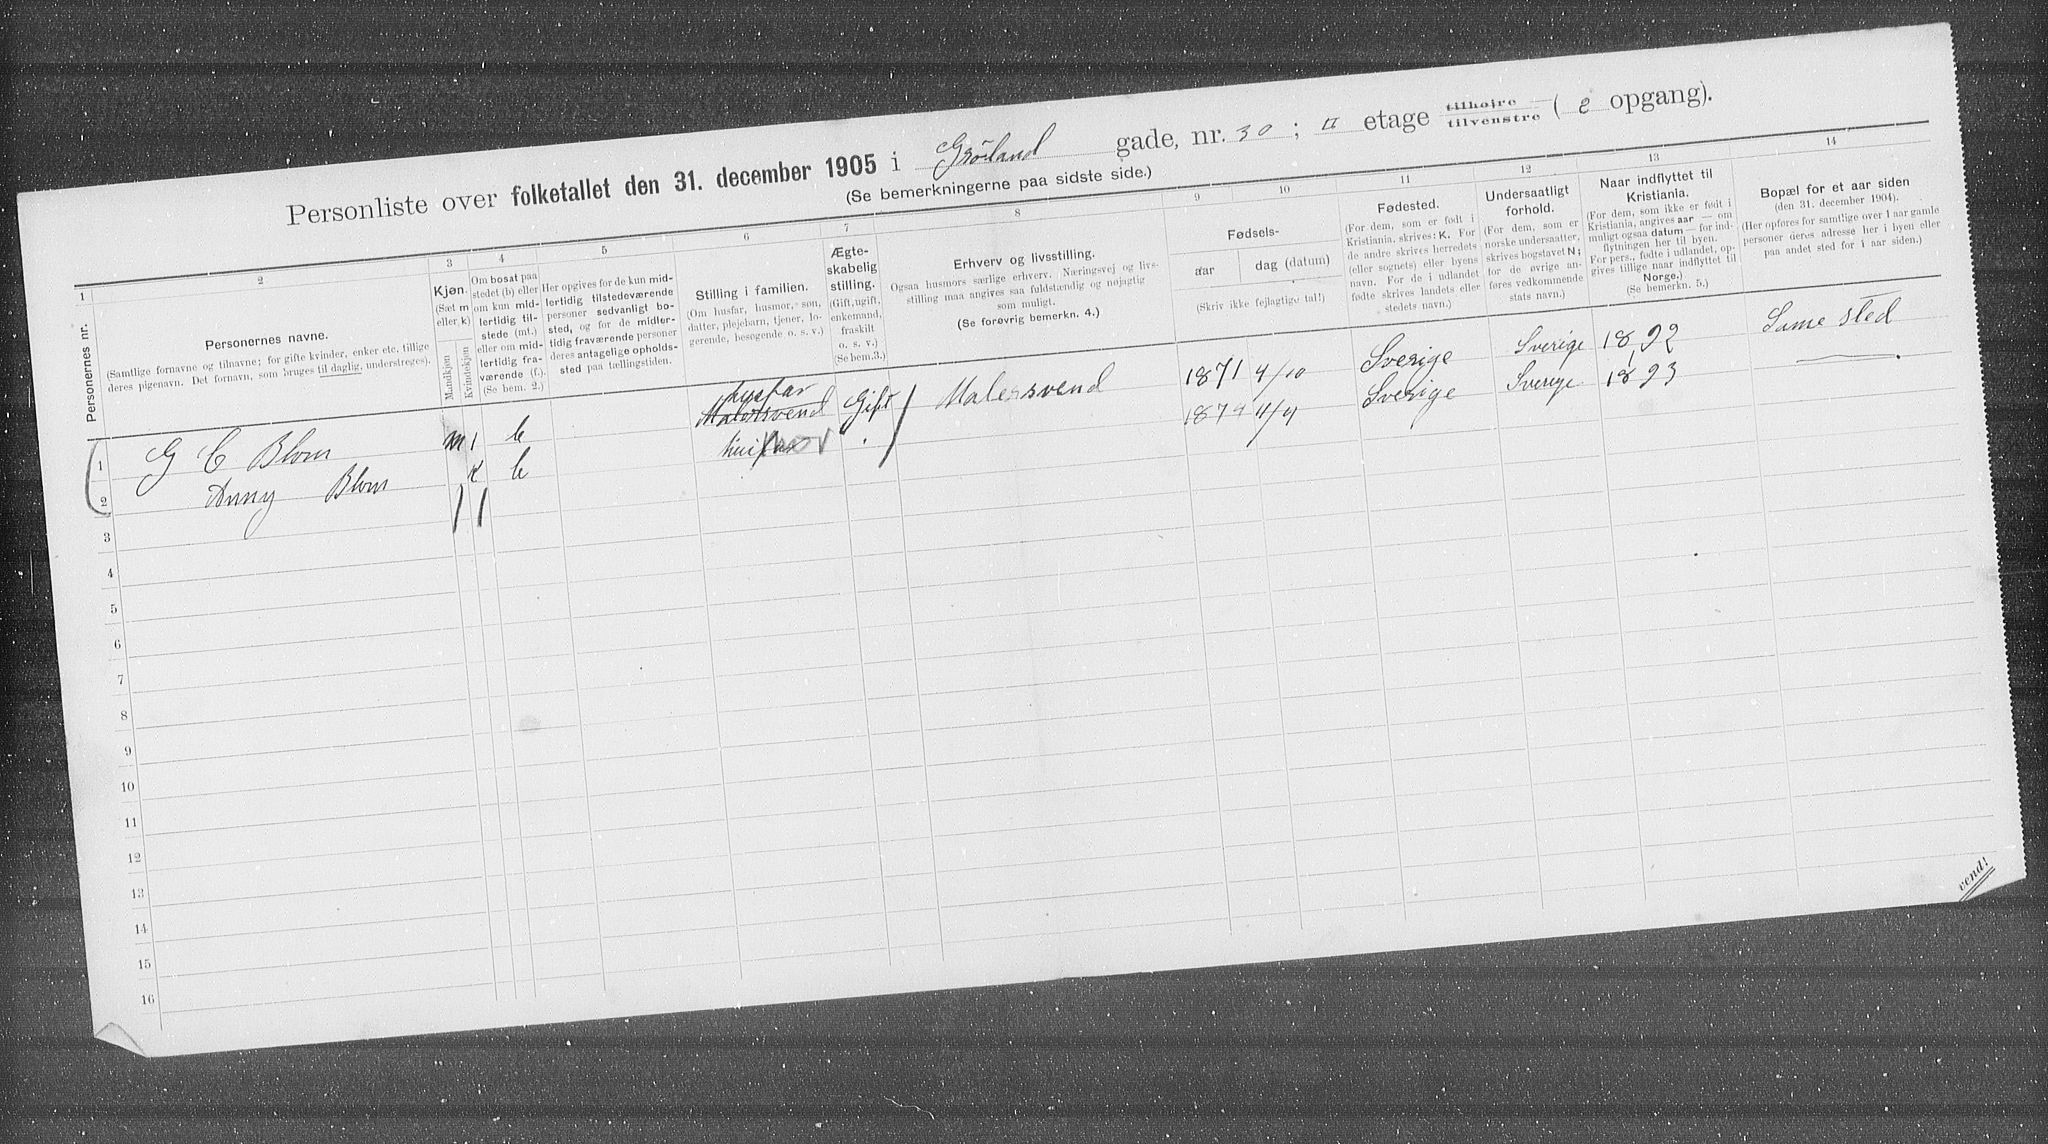 Personliste over folketallet den 31. december 1905 i Grønland gade, nr. 30; II etage tilhøire / tilvenstre (2 opgang).
(Se bemerkningerne paa sidste side.)
1 2 3 4 5 6 7 8 9 10 11 12 13 14
Personernes nr.
Personernes navne.
(Samtlige fornavne og tilnavne; for gifte kvinder, enker etc. tillige deres pigenavn. Det fornavn, som bruges til daglig, understreges).
Kjøn.
(Sæt m eller k)
Mandkjøn
Kvindekjøn
Om bosat paa stedet (b) eller om kun midlertidig tilstede (mt.) eller om midlertidig fraværende (f.). (Se bem. 2.)
Her opgives for de kun midlertidig tilstedeværende personer sedvanligt bosted, og for de midlertidig fraværende personer deres antagelige opholdssted paa tællingstiden.
Stilling i familien.
(Om husfar, husmor, søn, datter, plejebarn, tjener, logerende, besøgende o. s. v.)
Ægteskabelig stilling.
(Gift, ugift, enkemand, fraskilt o. s. v.) (Se bem. 3.)
Erhverv og livsstilling.
Ogsaa husmors særlige erhverv. Næringsvej og livsstilling maa angives saa fuldstændig og nøjagtig som muligt.
(Se forøvrig bemerkn. 4.)
Fødsels-
aar
dag (datum)
(Skriv ikke fejlagtige tal!)
Fødested.
(For dem, som er født i Kristiania, skrives: K. For de andre skrives herredets (eller sognets) eller byens navn. For de i udlandet fødte skrives landets eller stedets navn.)
Undersaatligt forhold.
(For dem, som er norske undersaatter, skrives bogstavet N; for de øvrige anføres vedkommende stats navn.)
Naar indflyttet til Kristiania.
(For dem, som ikke er født i Kristiania, angives aar — om muligt ogsaa datum — for indflytningen her til byen. For pers., fødte i udlandet, opgives tillige naar indflyttet til Norge.)
(Se bemerkn. 5.)
Bopæl for et aar siden
(den 31. december 1904).
(Her opføres for samtlige over 1 aar gamle personer deres adresse her i byen eller paa andet sted for 1 aar siden.)
husfar
1 G C Blom m 1 b Malersvend Gift Malersvend 1871 4/10 Sverige Sverige 1892 Same sted
2 Anny Blom k b 1874 4/4 Sverige Sverige 1893
3
4
5
6
7
8
9
10
11
12
13
14
15
16
vend!